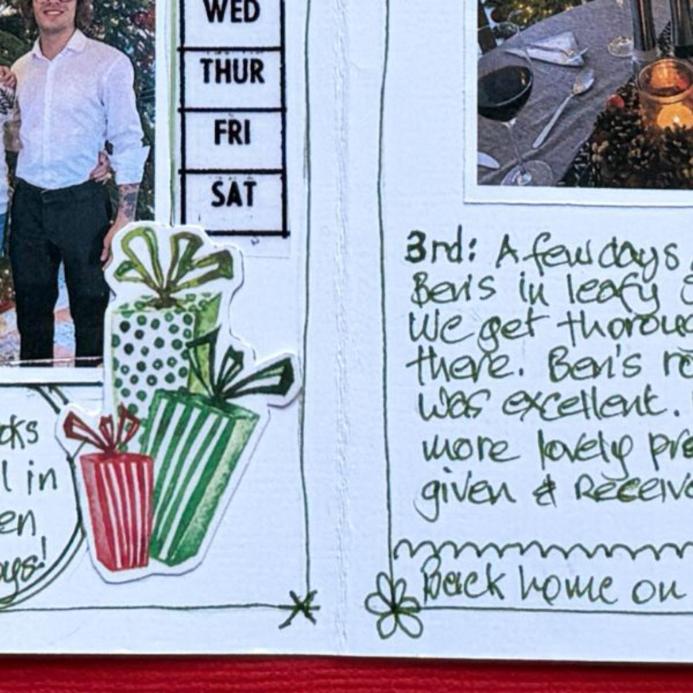 WED
THUR
FRI
SAT
l in
3rd: A few days
Ben's in leafy
We get
there. Ben's
was excellent.
more lovely
given & Receive
Back home on